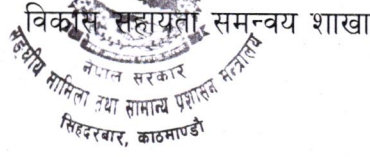 विकास सहायता समन्वय शाखा
नेपाल सरकार
सङ्घीय मामिला तथा सामान्य प्रशासन मन्त्रालय
सिंहदरबार, काठमाण्डौ